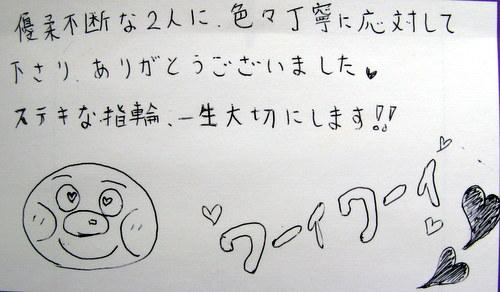 優柔不断な2人に、色々丁寧に応対して
下さり、ありがとうございました♥
ステキな指輪、一生大切にします!!
ワーイワーイ